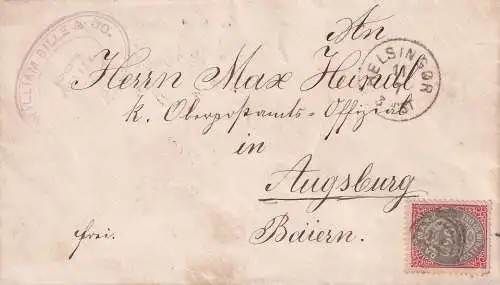 WILLIAM BILLE & Co.
An
HELSINGØR
Herrn Max Heindl
k. Oberpostamts-Offizial
in
Augsburg
frei.
Baiern.